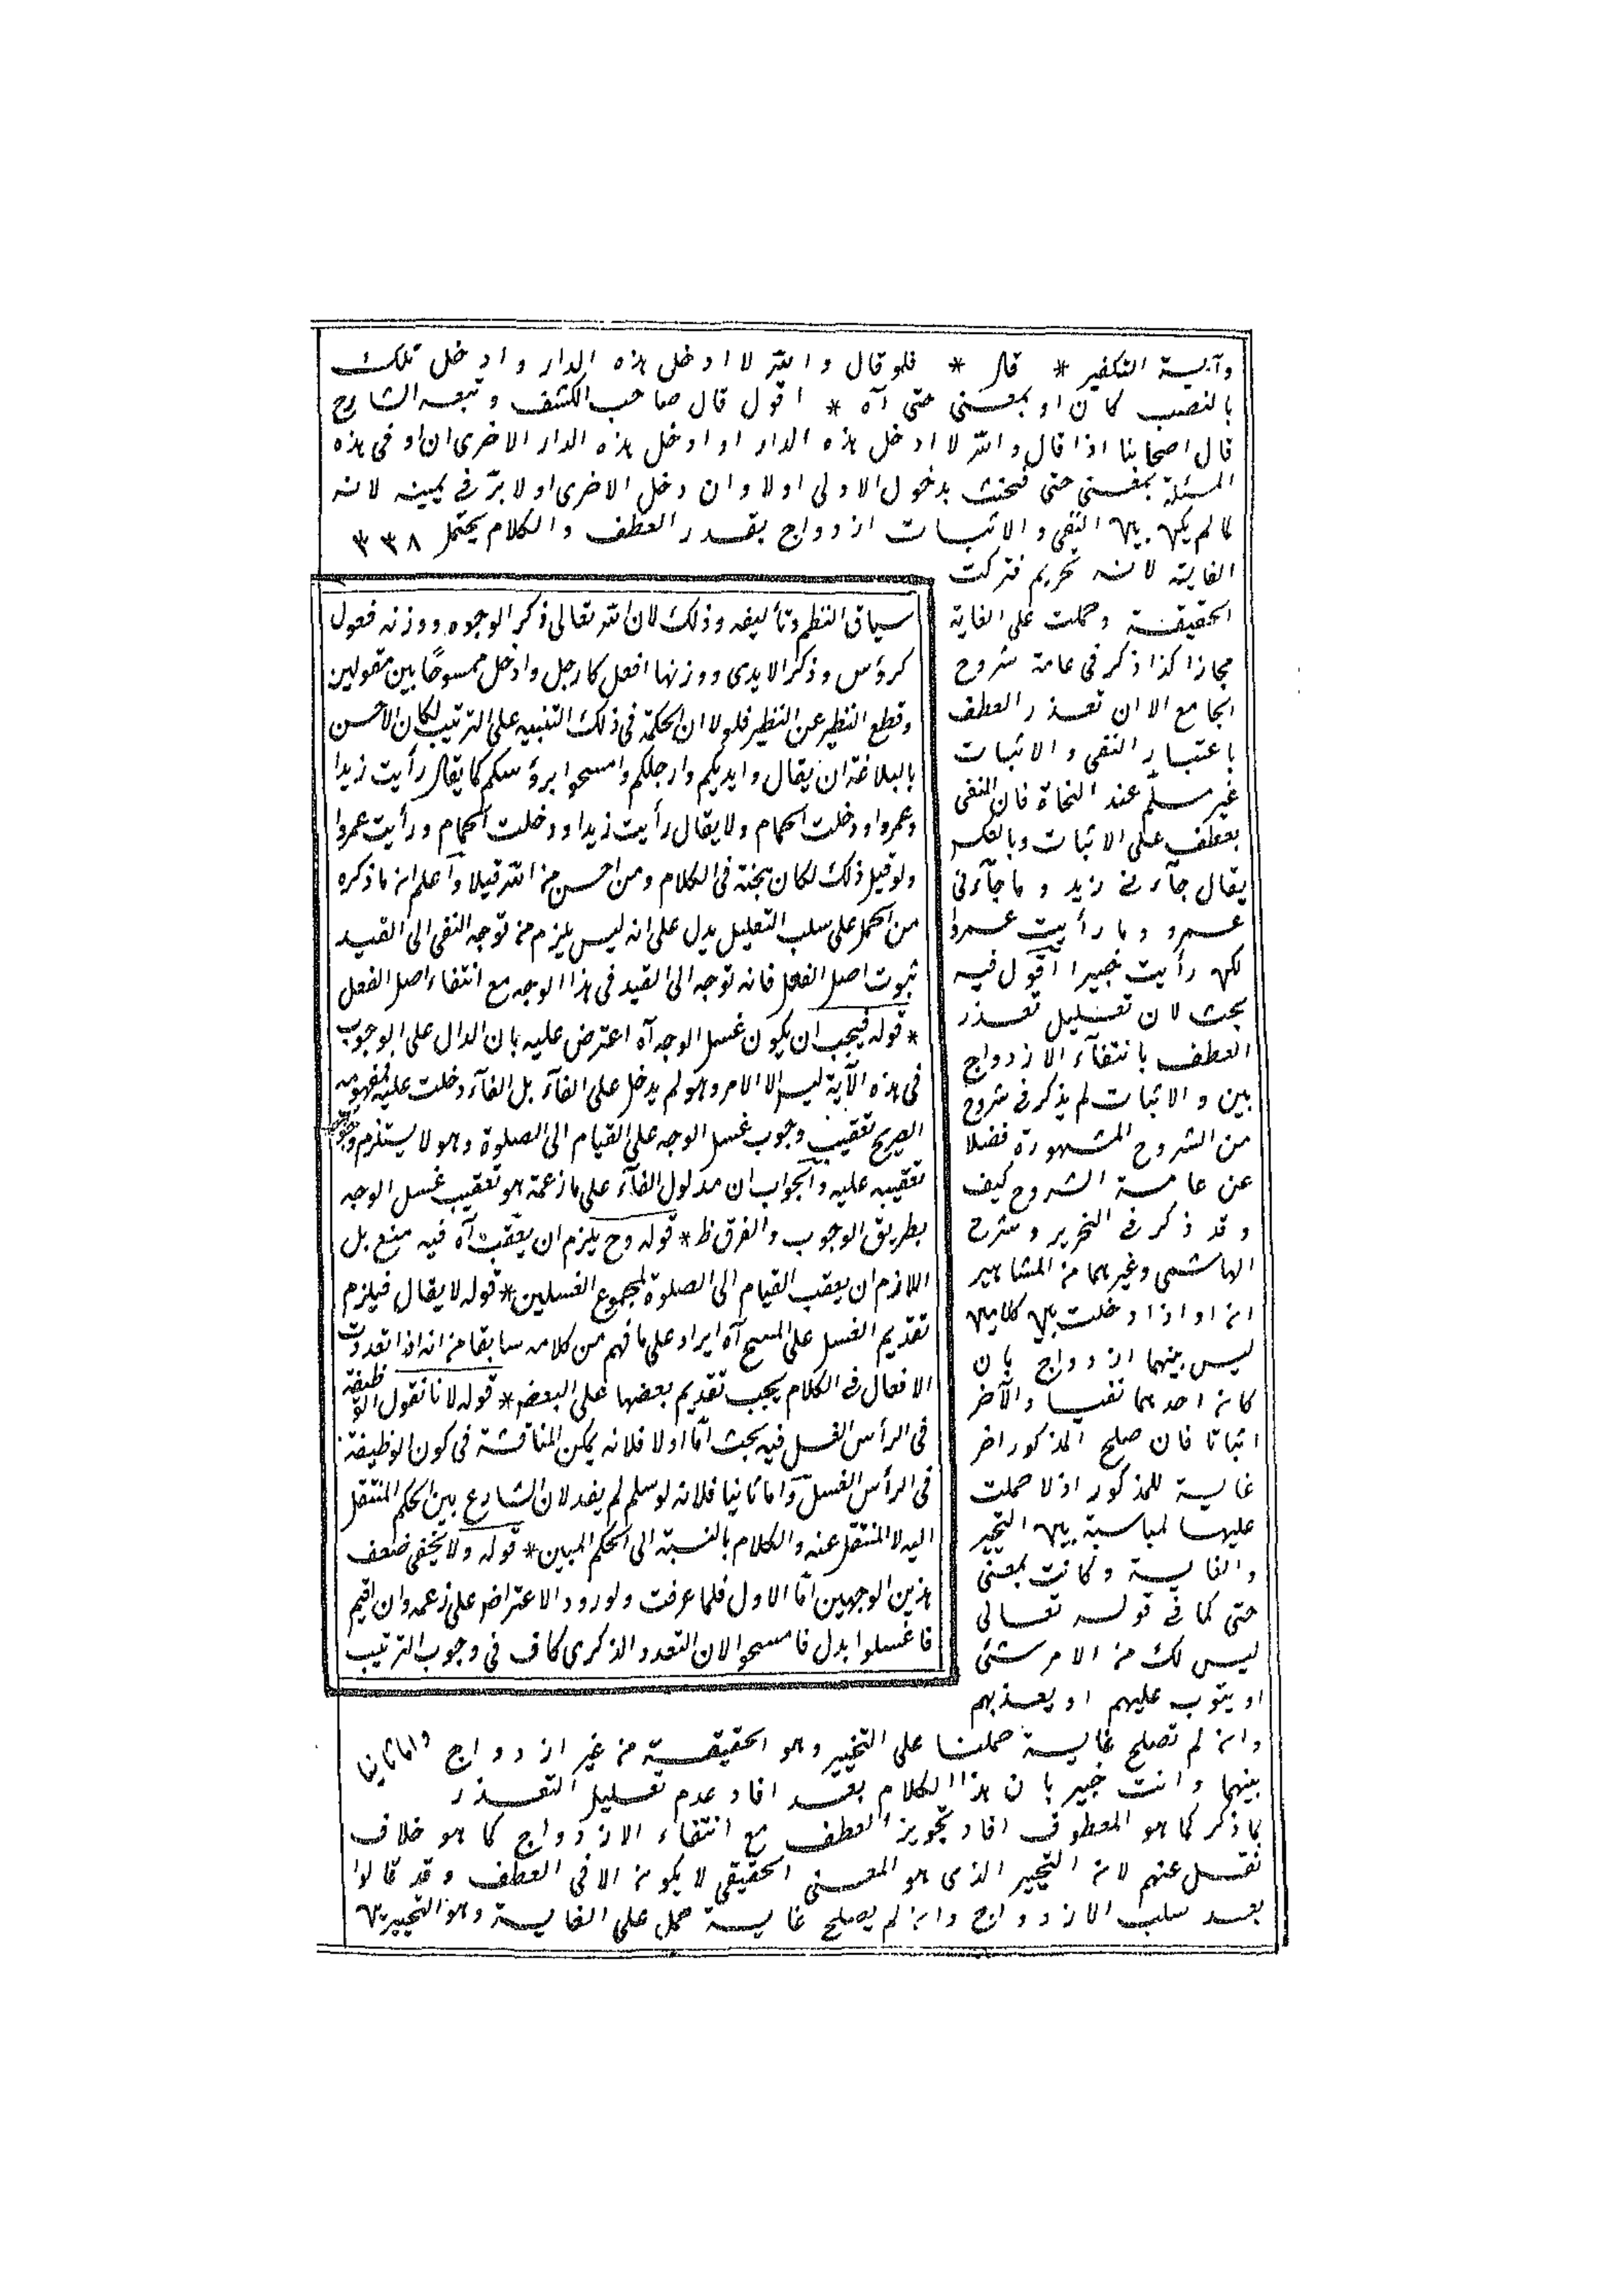 وآية التكفير * قال * فلو قال والله لا ادخل هذه الدار وادخل تلك
بالنصب كان او بمعنى حتى آه * اقول قال صاحب الكشف وتبعه الشارح
قال اصحابنا اذا قال والله لا ادخل هذه الدار او ادخل هذه الدار الاخرى ان او فى هذه
المسئلة بمعنى حتى فيحنث بدخول الاولى اولا وان دخل الاخرى اولا برّ فى يمينه لانه
لما لم يكن بين النفى والاثبات ازدواج يقدر العطف والكلام يحتمل ٣٣٨
الغاية لانه تحريم فتركت
الحقيقة وحملت على الغاية
مجازا كذا ذكر فى عامة شروح
الجامع الا ان تعذر العطف
باعتبار النفى والاثبات
غير مسلّم عند النحاة فان المنفى
يعطف على الاثبات وبالعكس
يقال جآءنى زيد وما جآءنى
عمرو وما رأيت عمروا
لكن رأيت بصيرا اقول فيه
بحث لان تعليل تعذر
العطف بانتفآء الازدواج
بين والاثبات لم يذكر فى شروح
من الشروح المشهورة فضلا
عن عامة الشروح كيف
وقد ذكر فى التحرير وشرح
الهاشمى وغيرهما من المشاهير
ان او اذا دخلت بين كلامين
ليس بينهما ازدواج بان
كان احدهما نفيا والآخر
اثباتا فان صلح المذكور اخر
غاية للمذكور اولا حملت
عليها لمناسبة بين التخير
والغاية وكانت بمعنى
حتى كما فى قوله تعالى
ليس لك من الامر شئ
او يتوب عليهم او يعذبهم
وان لم تصلح غاية حملنا على التخيير وهو الحقيقة من غير ازدواج
بينهما وانت خبير بان هذا الكلام بعد افاد عدم تعليل التعذر واما ثانيا
بما ذكر كما هو المعطوف افاد تجويز العطف مع انتفاء الازدواج كما هو خلاف
نقل عنهم لان التخيير الذى هو المعنى الحقيقى لا يكون الا فى العطف وقد قالوا
بعد سلب الازدواج وان لم يصلح غاية حمل على الغاية وهو التخيير بين
سياق النظم وتأليفه وذلك لان الله تعالى ذكر الوجوه ووزنه فعول
كرؤس وذكر الايدى ووزنها افعل كارجل وادخل ممسوحًا بين مغسولين
وقطع النظير عن النظير فلولا ان الحكمة فى ذلك التنبيه على الترتيب لكان الاحسن
بالبلاغة ان يقال وايديكم وارجلكم وامسحوا برؤسكم كما يقال رأيت زيدا
وعمروا ودخلت الحمام ولا يقال رأيت زيدا ودخلت الحمام ورأيت عمروا
ولو قيل ذلك لكان هجنة فى الكلام ومن احسن من الله قيلا واعلم ان ما ذكره
من الحمل على سلب التعليل يدل على انه ليس يلزم من توجه النفى الى القيد
ثبوت اصل الفعل فانه توجه الى القيد فى هذا الوجه مع انتفاء اصل الفعل
* قوله فيجب ان يكون غسل الوجه آه اعترض عليه بان الدال على الوجوب
فى هذه الآية ليس الا الامر وهو لم يدخل على الفآء بل الفآء دخلت عليه فمفهومه
الصريح تعقيب وجوب غسل الوجه على القيام الى الصلوة وهو لا يستلزم وجوب
تعقيبه عليه والجواب ان مدلول الفآء على ما زعمه هو تعقيب غسل الوجه
بطريق الوجوب والفرق ظ * قوله وح يلزم ان يعقب آه فيه منع بل
اللازم ان يعقب القيام الى الصلوة لمجموع الغسلين * قوله لا يقال فيلزم
تقديم الغسل على المسح آه ايراد على ما فهم من كلامه سابقا من انه اذا تعددت
الافعال فى الكلام يجب تقديم بعضها على البعض * قوله لانا نقول الوظيفة
فى الرأس الغسل فيه بحث امّا اولا فلانه يمكن المناقشة فى كون الوظيفة
فى الرأس الغسل وامّا ثانيا فلانه لو سلم لم يفد لان الشارع بين الحكم المنتقل
اليه لا المنتقل عنه والكلام بالنسبة الى الحكم المبين * قوله ولا يخفى ضعف
هذين الوجهين امّا الاول فلما عرفت ولورود الاعتراض على زعمه وان اقيم
فاغسلوا بدل فامسحوا لان التعدد الذكرى كاف فى وجوب الترتيب